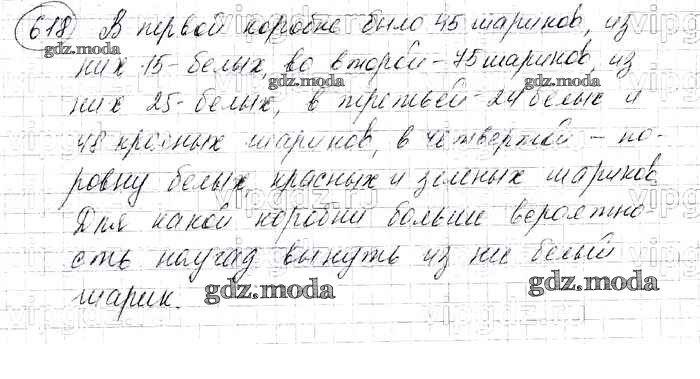 618) В первой коробке было 45 шариков, из
них 15 - белых, во второй - 75 шариков, из
них 25 - белых, в третьей - 24 белых и
48 красных шариков, в четвертой - по-
ровну белых, красных и зеленых шариков.
Для какой коробки больше вероятно-
сть наугад вынуть из нее белый
шарик.
gdz.moda
gdz.moda
gdz.moda
gdz.moda
gdz.moda
gdz.moda